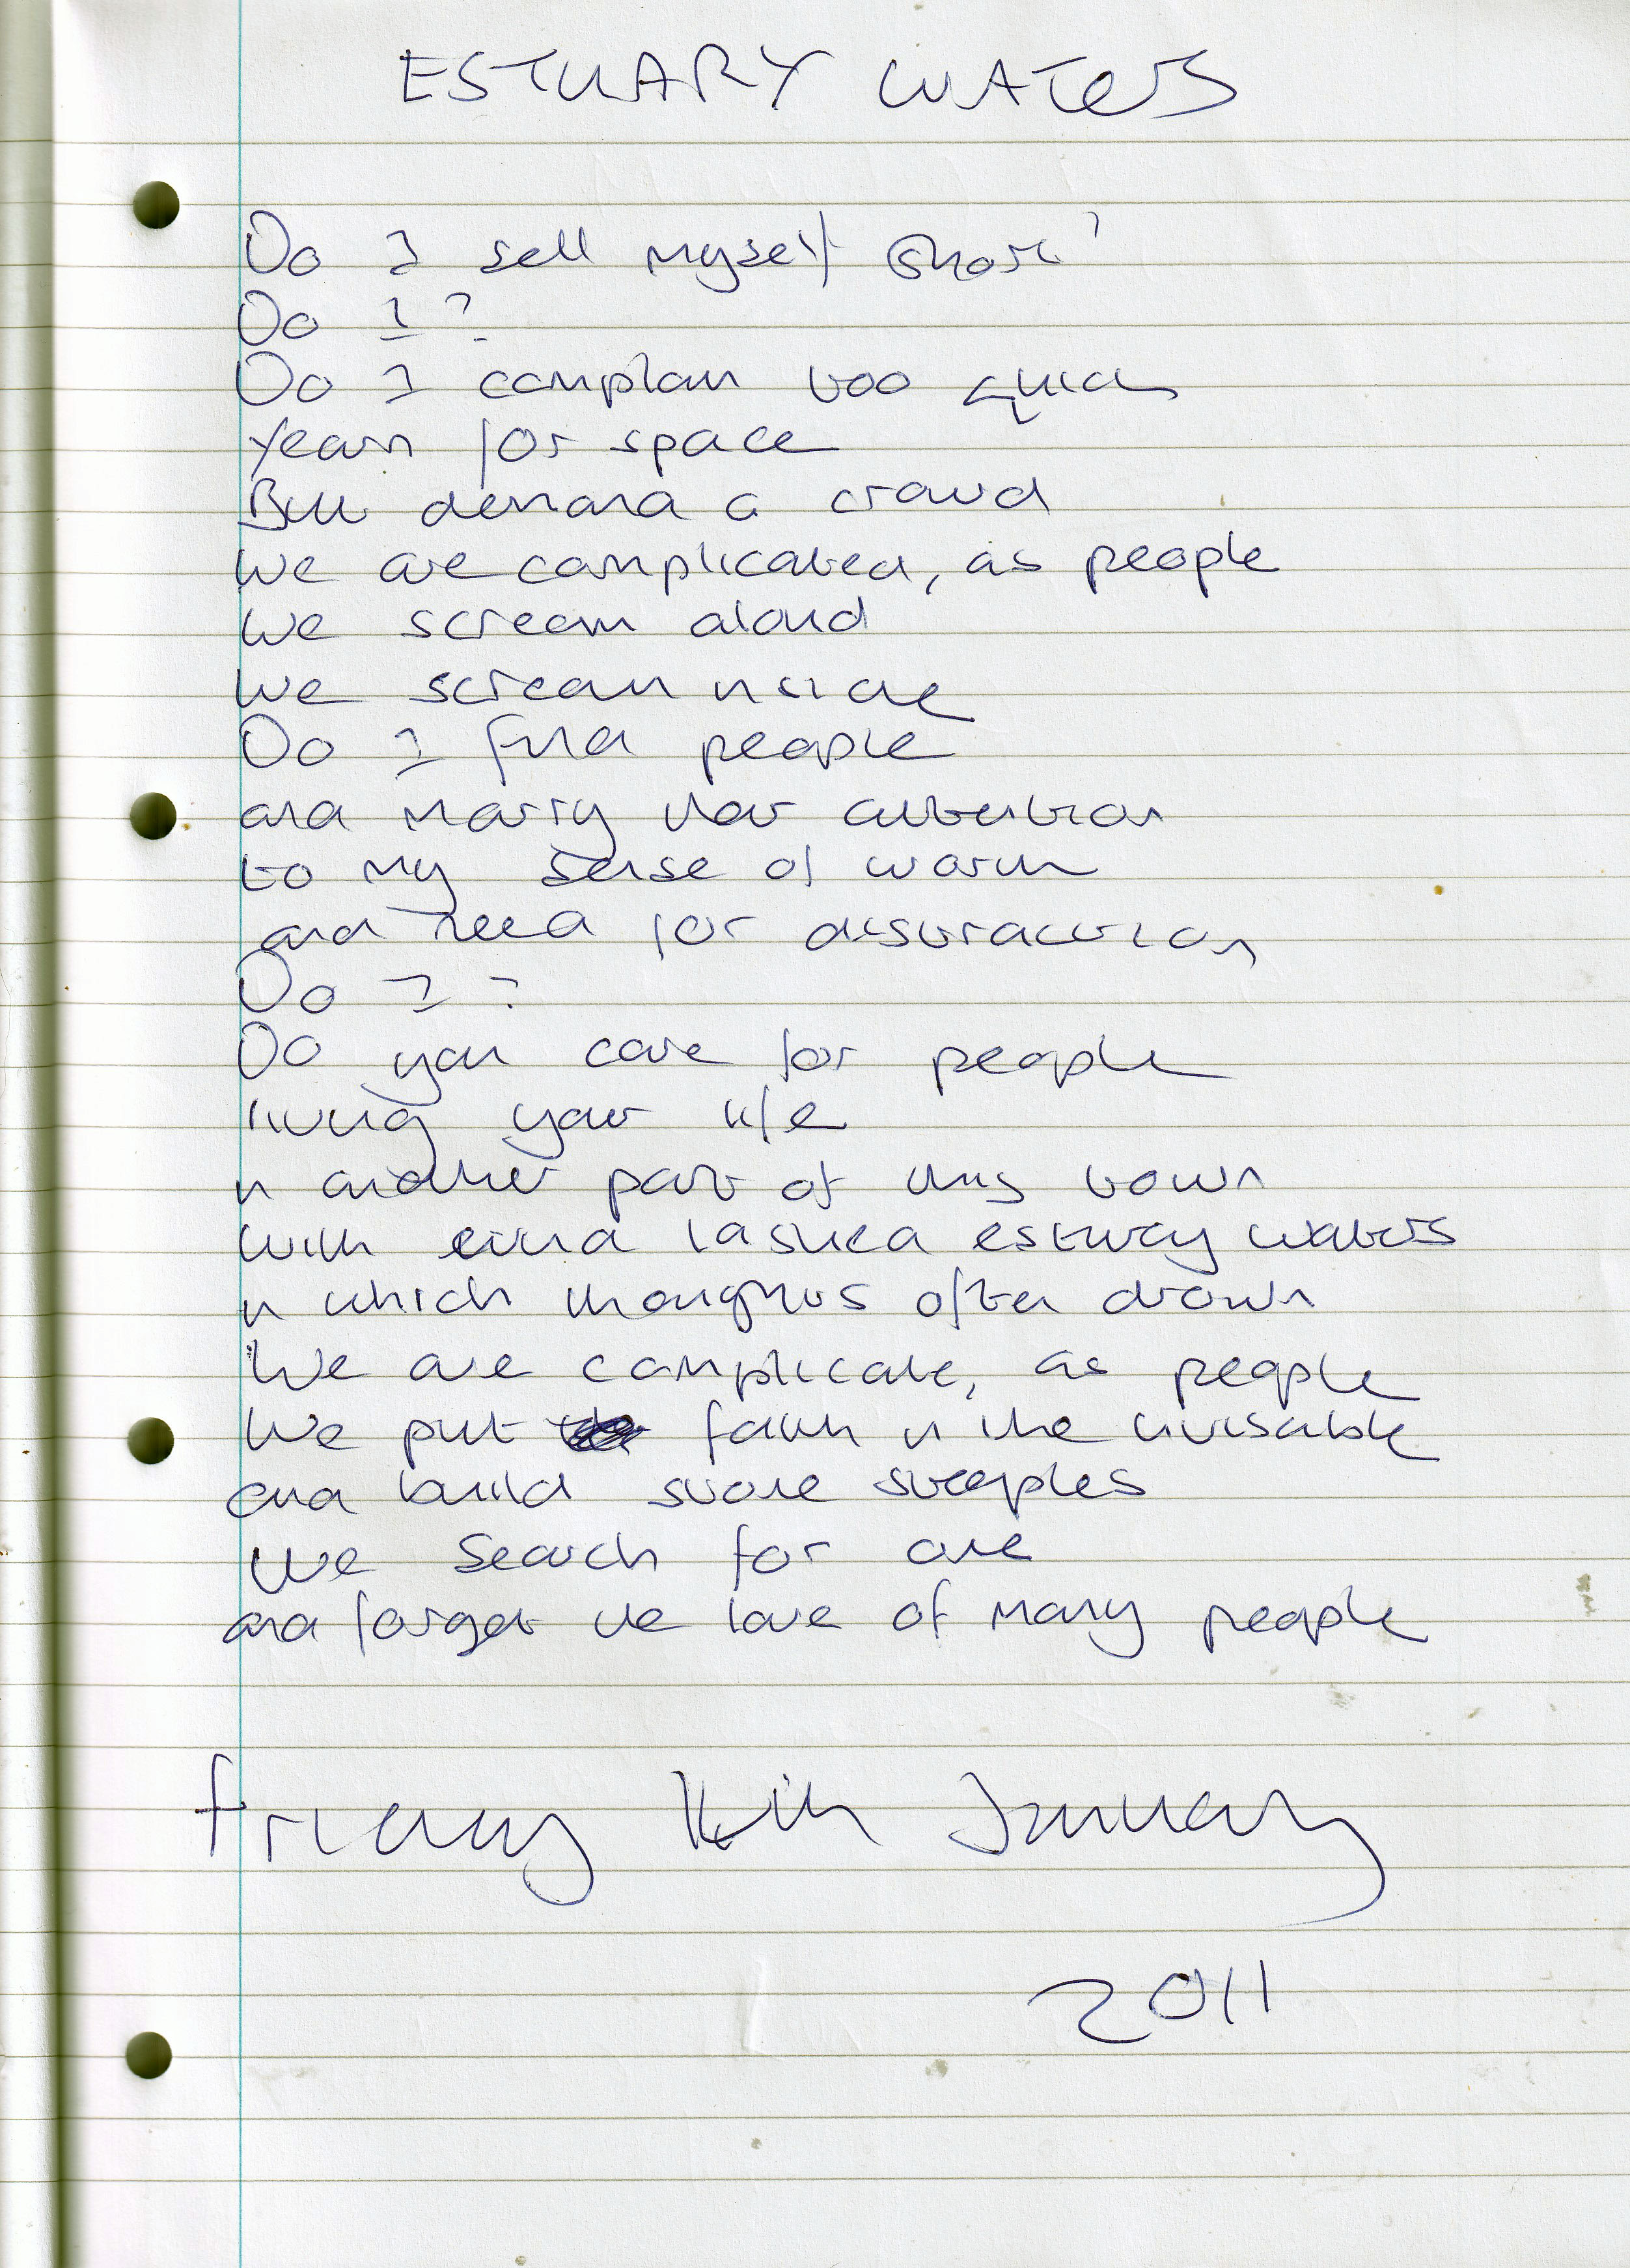 ESTUARY WATERS
Do I sell myself short?
Do I?
Do I complain too quick
Yearn for space
But demand a crowd
We are complicated, as people
We scream aloud
We scream inside
Do I find people
and marry their attention
to my sense of worth
and need for distraction
Do I?
Do you care for people
living your life
in another part of this town
With wind lashed estuary waters
in which thoughts often drown
We are complicate, as people
We put faith in the invisable
and build stone steeples
We search for one
and forget the love of many people
Friday 14th January
2011